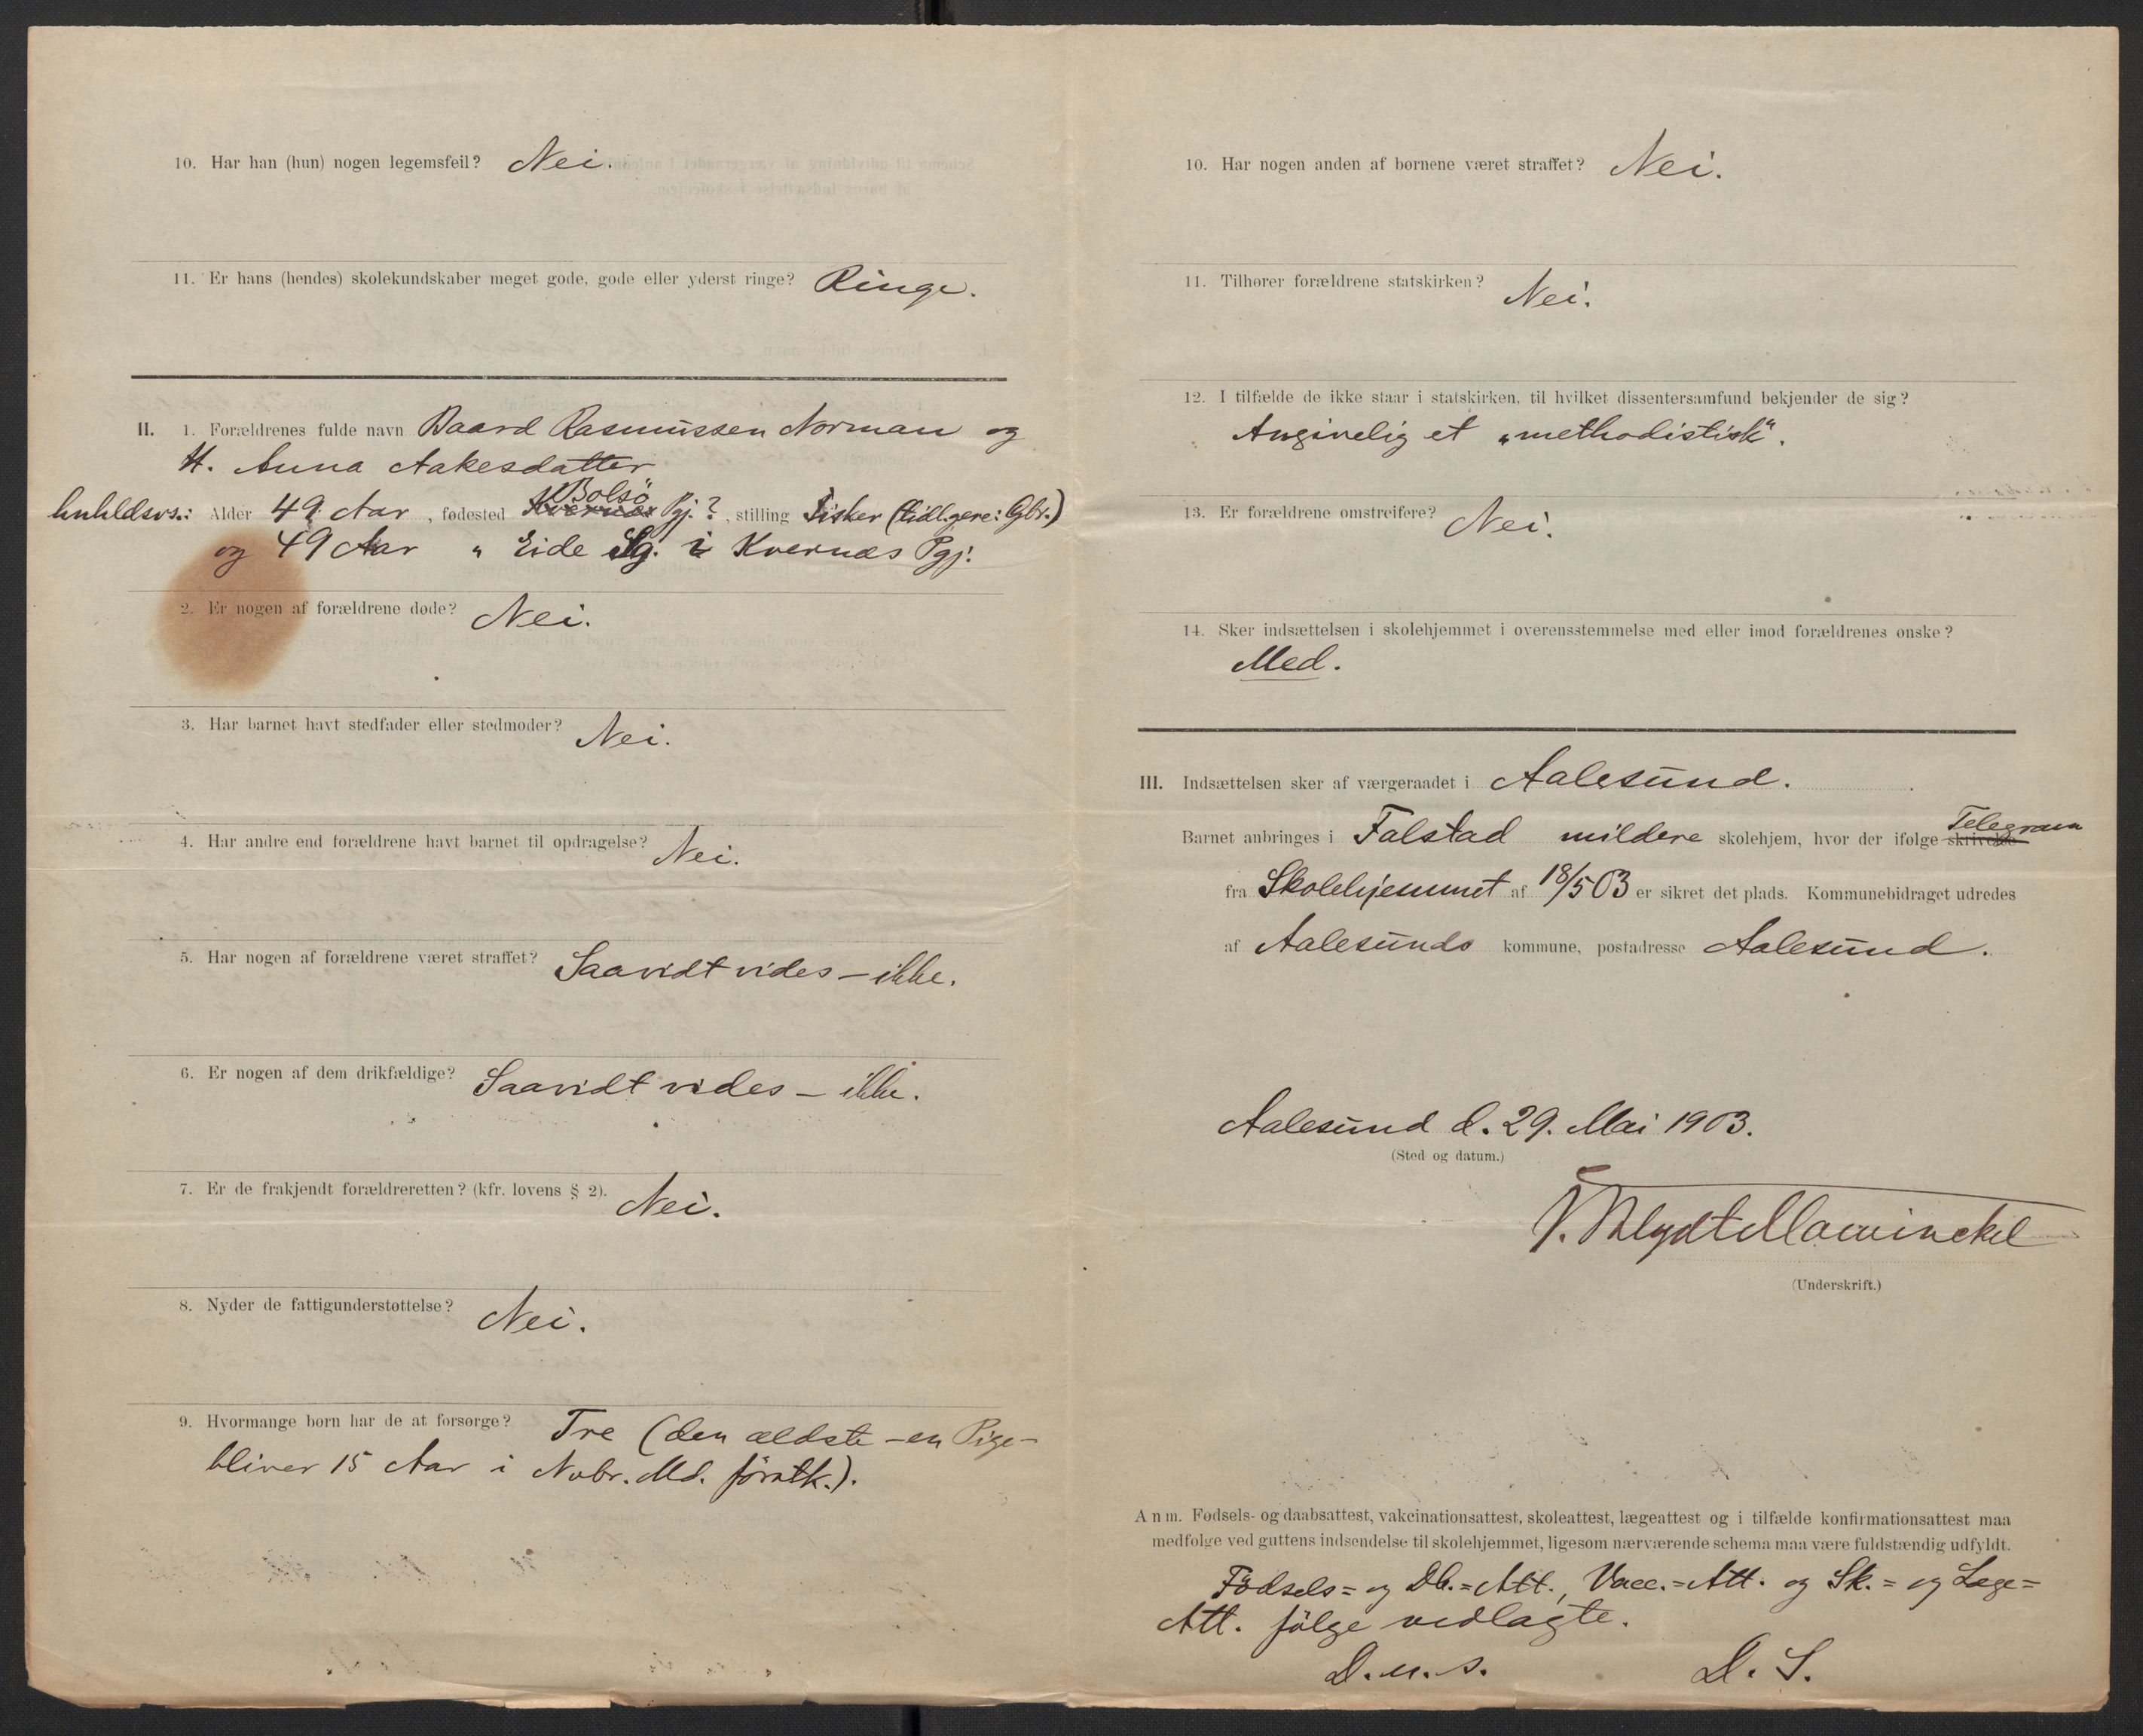 10. Har han (hun) nogen legemsfeil? Nei.
11. Er hans (hendes) skolekundskaber meget gode, gode eller yderst ringe? Ringe.
II. 1. Forældrenes fulde navn Baard Rasmussen Norman og
H. Anna Aakesdatter
huhldsvs.: Alder 49 Aar, fødested Kvernæs Bolsö Pgj.?, stilling Fisker (tidligere: Gbr.)
og 49 Aar " Eide Sg. i Kvernæs Pgj.
2. Er nogen af forældrene døde? Nei.
3. Har barnet havt stedfader eller stedmoder? Nei.
4. Har andre end forældrene havt barnet til opdragelse? Nei.
5. Har nogen af forældrene været straffet? Saavidt vides – ikke.
6. Er nogen af dem drikfældige? Saavidt vides – ikke.
7. Er de frakjendt forældreretten? (kfr. lovens § 2). Nei.
8. Nyder de fattigunderstøttelse? Nei.
9. Hvormange børn har de at forsørge? Tre (den ældste – en Pige –
bliver 15 Aar i Novbr. Md. førstk.).
10. Har nogen anden af børnene været straffet? Nei.
11. Tilhører forældrene statskirken? Nei.
12. I tilfælde de ikke staar i statskirken, til hvilket dissentersamfund bekjender de sig?
Angivelig et „methodistisk".
13. Er forældrene omstreifere? Nei.
14. Sker indsættelsen i skolehjemmet i overensstemmelse med eller imod forældrenes ønske?
Med.
III. Indsættelsen sker af værgeraadet i Aalesund.
Barnet anbringes i Falstad mildere skolehjem, hvor der ifølge skrivelse Telegram
fra Skolehjemmet af 18/5 03 er sikret det plads. Kommunebidraget udredes
af Aalesunds kommune, postadresse Aalesund.
Aalesund d. 29. Mai 1903.
(Sted og datum.)
(Underskrift.)
Anm. Fødsels- og daabsattest, vakcinationsattest, skoleattest, lægeattest og i tilfælde konfirmationsattest maa
medfølge ved guttens indsendelse til skolehjemmet, ligesom nærværende schema maa være fuldstændig udfyldt.
Födsels= og Db.=Att., Vacc.=Att. og Sk.= og Læge=
Att. følge vedlagte.
D. u. s. D. S.